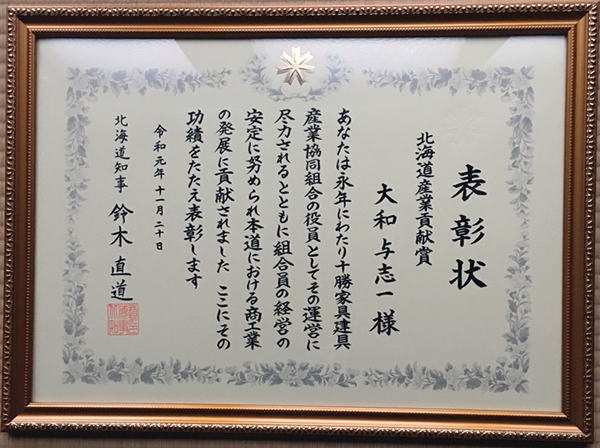 表彰状
北海道産業貢献賞
大和与志一様
あなたは永年にわたり十勝家具建具
産業協同組合の役員としてその運営に
尽力されるとともに組合員の経営の
安定に努められ本道における商工業
の発展に貢献されました ここにその
功績をたたえ表彰します
令和元年十一月二十日
北海道知事 鈴木直道